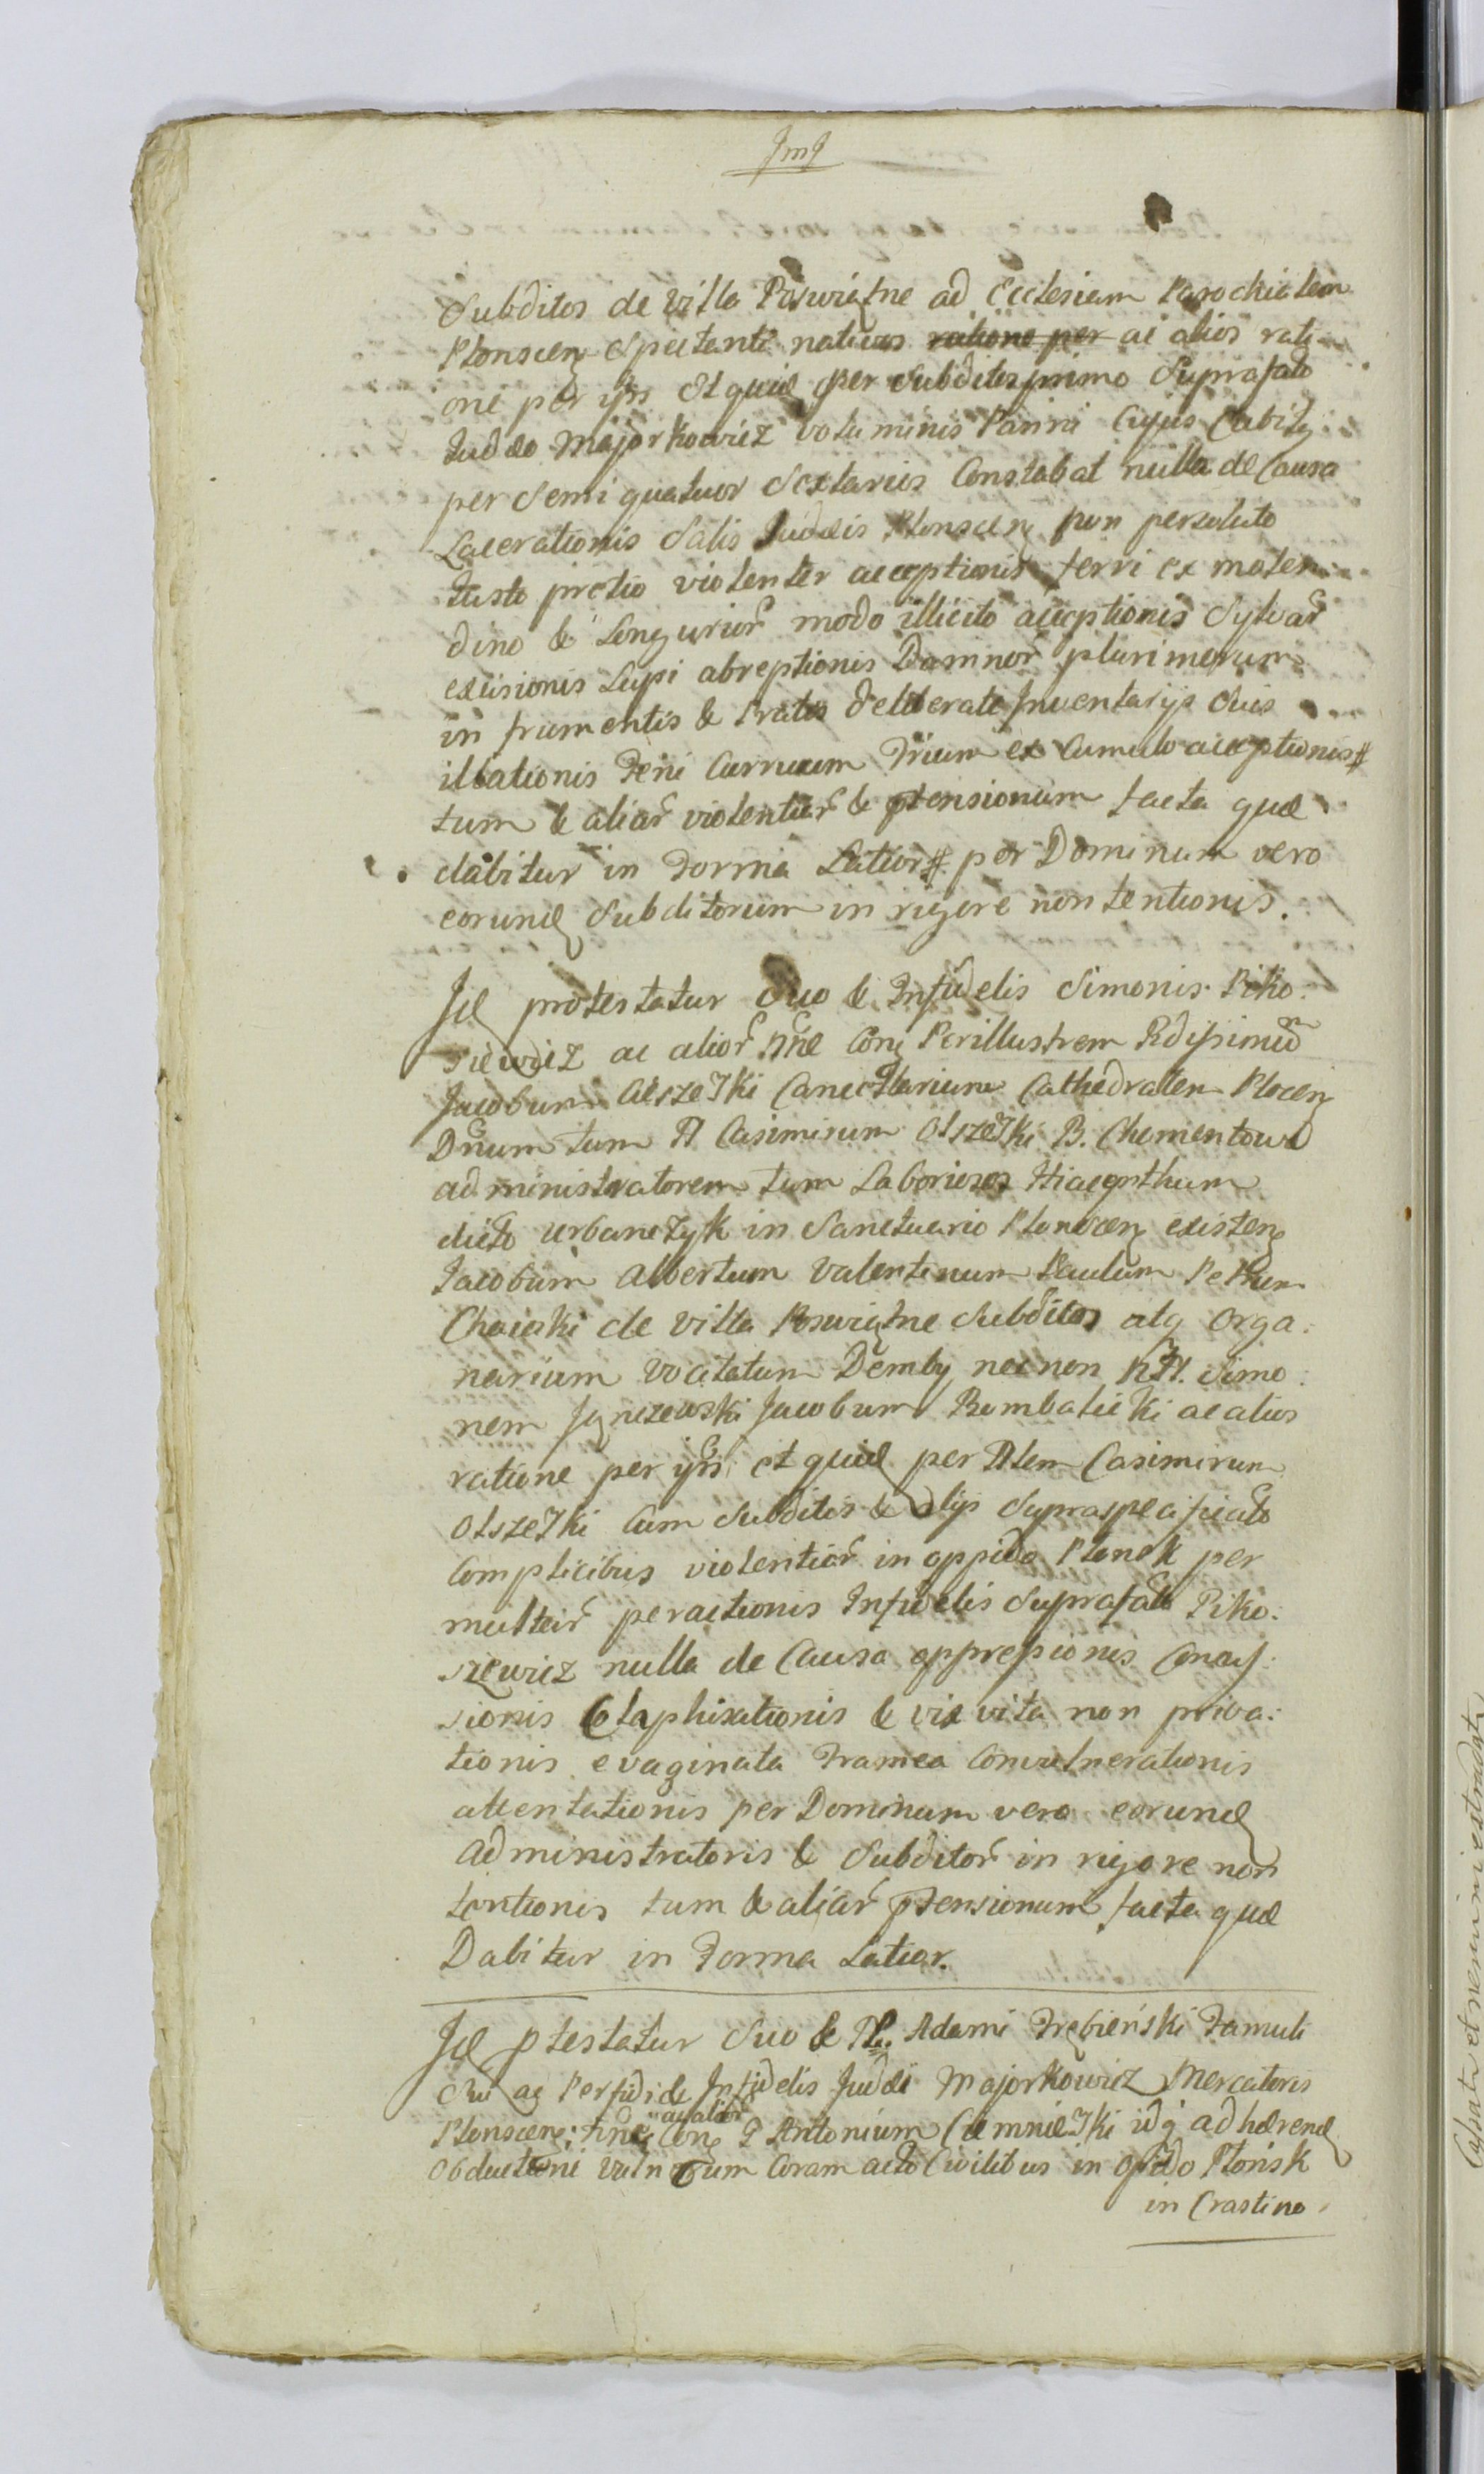 JmJ
Subditos de Villa Poswiętne ad Ecclesiam Parochialem
Plonscen Spectante nativos ratione per ac alios rati
one per ipss Et quid per Subditos primo Suprafato
Judeo Majorkowicz voluminis Panni Cujus Cubity
per Semi quatuor Sextarios Constabat nulla de Causa
Lacerationis Salis Judeis Plonscen non persoluto
Justo pretio violenter acceptionis ferri ex molen
dino & Longurior modo illicito acceptionis Sylvar
excisionis Lupi abreptionis Damnor plurimorum
in frumentis & Pratis deliberate Inventarijs Suis
illationis Feni Curruum Trium ex Cumulo acceptionis #
tum & aliar violentiar & ptensionum facta quæ
dabitur in Forma Latior # per Dominum vero
eorund Subditorum in rigore non tentionis.
Id protestatur Suo & Infidelis Simonis Piko:
siewicz ac alior nne Conq Perillustrem Rdissimum
Jacobum Olszeski Cancellarium Cathedralem Plocen
Dnum tum N Casimirum Olszeski B. Chementowo
administratorem tum Laboriosos Hiacynthum
dicto Urbanczyk in Sanctuario Plonscen existen
Jacobum Albertum Valentinum Paulum Petrum
Choieski de Villa Poswiętne Subditos atq Orga:
narium vocitatum Demby nec non NN. Simo:
nem Jgnezewski Jacobum Rembalicki ac alios
ratione per ipss et quid per Nlem Casimirum
Olszeski Cum Subditis & alijs Supraspecificato
Complicibus violentiar in oppido Plonsk per
multar peractionis Infidelis Suprafato Piko:
szewicz nulla de Causa oppressionis Concus
sionis Colaphisationis & vix vita non priva:
tionis evaginata Framea Convulnerationis
attentationis per Dominum vero eorund
Administratoris & Subditor in rigore non
tentionis tum & aliar ptensionum facta quæ
Dabitur in Forma Latior.
Id ptestatur Suo & N. Adami Trębieński Famuli
Sui ac Perfidi & Infidelis Judei Majorkowicz Mercatoris
ac alior
Plonscen; nne Conq G Antonium Ciemnieski idq adhærend
Obductioni Vulnerum Coram acto Civilibus in opido Płońsk
in Crastino